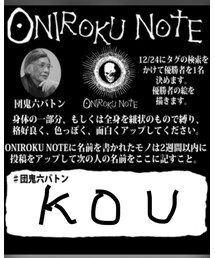 ONIROKU NOTE
12/24にタグの検索を
かけて優勝者を1名
決めます。
優勝者の絵を
描きます。
団鬼六バトン
ONIROKU NOTE
身体の一部分、もしくは全身を紐状のもので縛り、
格好良く、色っぽく、面白くアップしてください。
ONIROKU NOTEに名前を書かれたモノは2週間以内に
投稿をアップして次の人の名前をここに記すこと。
#団鬼六バトン
KOU